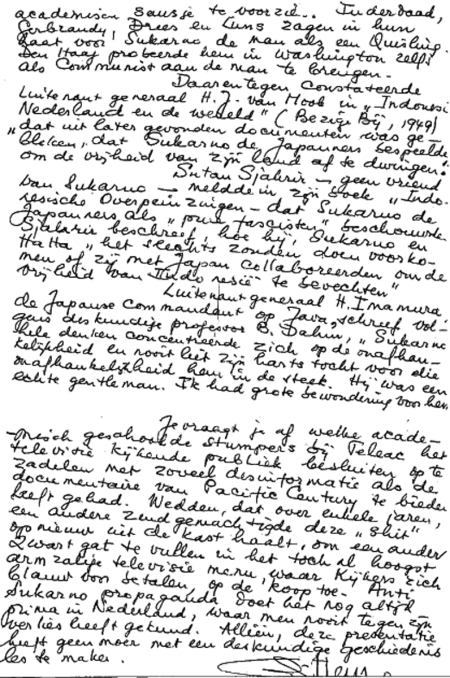 academische sausje te voorzien.. Inderdaad,
Gerbrandy, Drees en Luns zagen in hun
haat voor Sukarno de man als een Quisling.
Den Haag probeerde hem in Washington zelfs
als Communist aan de man te brengen.
Daarentegen constateerde
Luitenant generaal H.J. van Mook in „Indonesië
Nederland en de wereld" (Bezige Bij, 1949)
„dat uit later gevonden documenten was ge-
bleken, dat Sukarno de Japanners bespeelde
om de vrijheid van zijn land af te dwingen."
Sutan Sjahrir — geen vriend
van Sukarno — meldde in zijn boek „Indo-
nesische Overpeinzingen — dat Sukarno de
Japanners als „pure fascisten" beschouwde
Sjahrir beschreef, hoe hij, Sukarno en
Hatta „het slechts zonden doen voorko-
men of zij met Japan collaboreerden om de
vrijheid van Indonesië te bevechten"
Luitenant generaal H. Imamura
de Japanse Commandant op Java, schreef vol-
gens deskundige professor B. Dahm, „Sukarno
hele denken concentreerde zich op de onafhan-
kelijkheid en nooit liet zijn harts tocht voor die
onafhankelijkheid hem in de steek. Hij was een
echte gentleman. Ik had grote bewondering voor hem
Je vraagt je af welke acade-
misch geschoolde stumpers bij Teleac het
televisie kijkende publiek besluiten op te
zadelen met zoveel desinformatie als de
documentaire van Pacific Century te bieden
heeft gehad. Wedden, dat over enkele jaren,
een andere zendgemachtigde deze „shit"
opnieuw uit de kast haalt, om een ander
zwart gat te vullen in het toch al hoogst
armzalige televisie menu, waar kijkers zich
blauw voor betalen, op de koop toe. Anti
Sukarno propaganda doet het nog altijd
prima in Nederland, waar men nooit tegen zijn
verlies heeft gekund. Alleen, deze presentatie
heeft geen moer met een deskundige geschiedenis
les te maken.